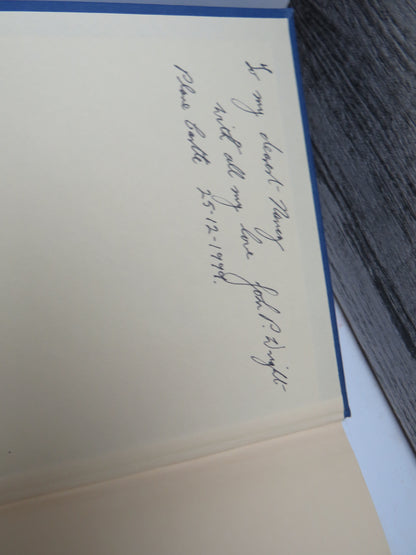 To my dearest Nancy
with all my love John P. Wright
Plane Castle 25-12-1999.